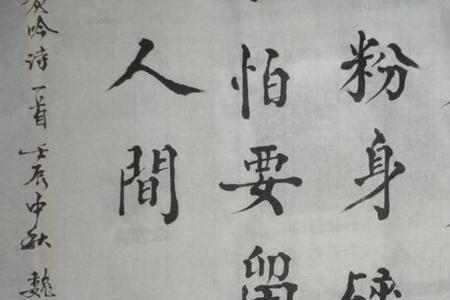 粉身碎
怕要留
人間
吟诗一首 壬辰中秋 魏